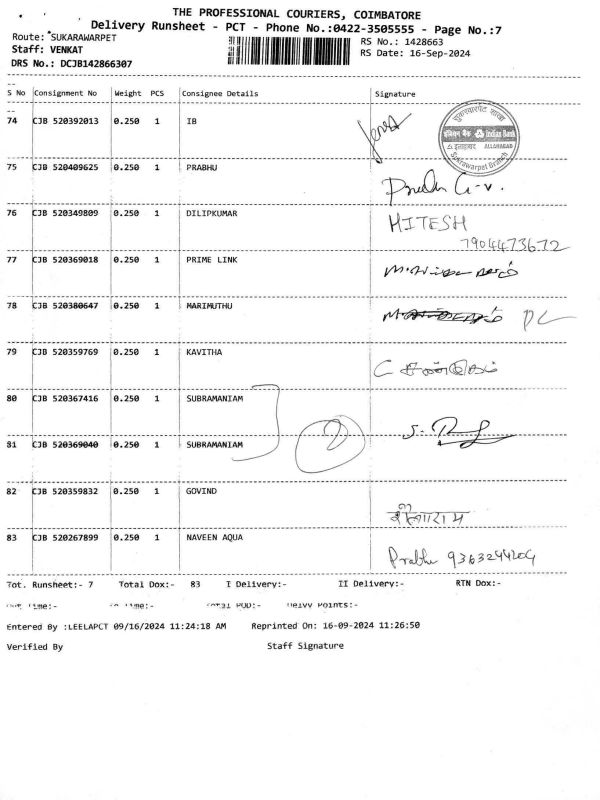 THE PROFESSIONAL COURIERS, COIMBATORE
Delivery Runsheet - PCT - Phone No.:0422-3505555 - Page No.:7
Route: SUKARAWARPET
RS No.: 1428663
Staff: VENKAT
RS Date: 16-Sep-2024
DRS No.: DCJB142866307
S No Consignment No Weight PCS Consignee Details Signature
74 CJB 520392013 0.250 1 IB
शुक्रवारपेट शाखा
इंडियन बैंक Indian Bank
इलाहाबाद ALLAHABAD
Sukrawarpet Branch
75 CJB 520409625 0.250 1 PRABHU
76 CJB 520349809 0.250 1 DILIPKUMAR HITESH
7904473672
77 CJB 520369018 0.250 1 PRIME LINK
78 CJB 520380647 0.250 1 MARIMUTHU
79 CJB 520359769 0.250 1 KAVITHA
80 CJB 520367416 0.250 1 SUBRAMANIAM
2
81 CJB 520369040 0.250 1 SUBRAMANIAM
82 CJB 520359832 0.250 1 GOVIND
83 CJB 520267899 0.250 1 NAVEEN AQUA Prabhu 9363294204
Tot. Runsheet:- 7 Total Dox:- 83 I Delivery:- II Delivery:- RTN Dox:-
Out Time:- In Time:- Total POD:- Delvy Points:-
Entered By :LEELAPCT 09/16/2024 11:24:18 AM Reprinted On: 16-09-2024 11:26:50
Verified By Staff Signature